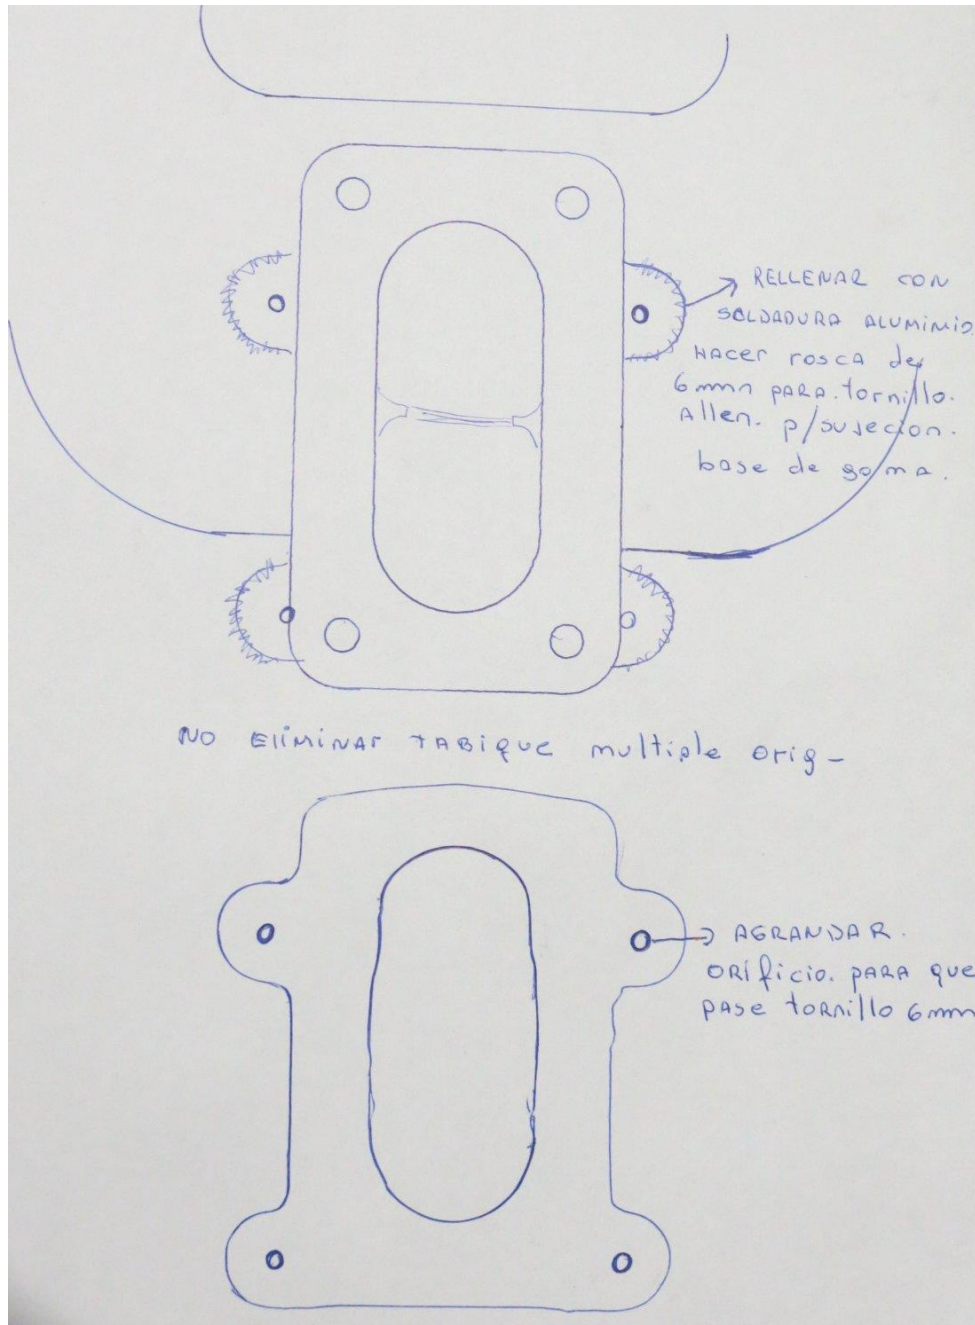 RELLENAR CON
SOLDADURA ALUMINIO
HACER ROSCA de
6mm PARA. tornillo.
Allen. p/sujecion.
base de goma.
NO ELIMINAR TABIQUE multiple orig-
AGRANDAR.
ORIFICIO. PARA QUE
PASE TORNILLO 6mm